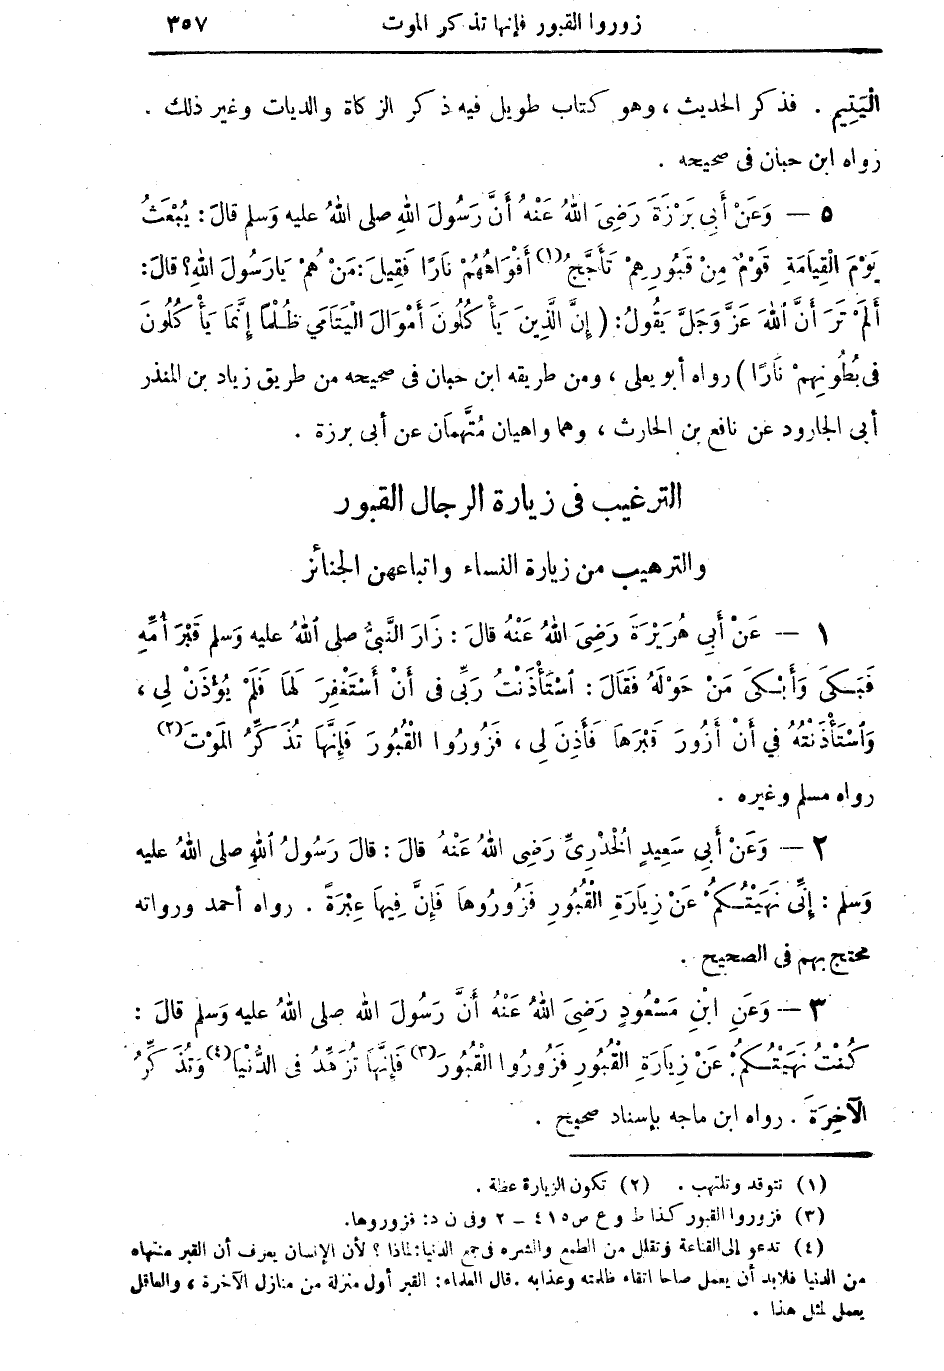 زوروا القبور فإنها تذكر الموت ٣٥٧
الْيَتِيمِ . فذكر الحديث ، وهو كتاب طويل فيه ذكر الزكاة والديات وغير ذلك .
رواه ابن حبان فى صحيحه .
٥ — وَعَنْ أَبِي بَرْزَةَ رَضِىَ اللهُ عَنْهُ أَنَّ رَسُولَ اللهِ صلى اللهُ عليه وَسلم قالَ : يُبْعَثُ
يَوْمَ الْقِيَامَةِ قَوْمٌ مِنْ قُبُورِهِمْ تَأَجَّجُ(١) أَفْوَاهُهُمْ نَارًا فَقِيلَ : مَنْ هُمْ يَارَسُولَ اللهِ؟ قالَ :
أَلَمْ تَرَ أَنَّ اللهَ عَزَّ وَجَلَّ يَقُولُ : ( إِنَّ الَّذِينَ يَأْكُلُونَ أَمْوَالَ الْيَتَامَي ظُلْمًا إِنَّمَا يَأْكُلُونَ
فى بُطُونِهِمْ نَارًا ) رواه أبو يعلى ، ومن طريقه ابن حبان فى صحيحه من طريق زياد بن المنذر
أبى الجارود عن نافع بن الحارث ، وهما واهيان مُتَّهمَان عن أبى برزة .
الترغيب فى زيارة الرجال القبور
والترهيب من زيارة النساء واتباعهن الجنائز
١ — عَنْ أَبِي هُرَيْرَةَ رَضِىَ اللهُ عَنْهُ قالَ : زَارَ النَّبِيُّ صلى اللهُ عليه وَسلم قَبْرَ أُمِّهِ
فَبَكَى وَأَبْكَى مَنْ حَوْلَهُ فَقَالَ : اسْتَأْذَنْتُ رَبِّى فى أَنْ أَسْتَغْفِرَ لَهَا فَلَمْ يُؤْذَنْ لِى ،
وَاسْتَأْذَنْتُهُ فِي أَنْ أَزُورَ قَبْرَهَا فَأَذِنَ لِى ، فَزُورُوا الْقُبُورَ فَإِنَّهَا تُذَكِّرُ المَوْتَ(٢)
رواه مسلم وغيره .
٢ — وَعَنْ أَبِي سَعِيدٍ الْخُدْرِىِّ رَضِى اللهُ عَنْهُ قالَ : قالَ رَسُولُ اللهِ صلى اللهُ عليه
وَسلم : إِنِّى نَهَيْتُكُمْ عَنْ زِيَارَةِ الْقُبُورِ فَزُورُوهَا فَإِنَّ فِيهَا عِبْرَةً . رواه أحمد ورواته
محتج بهم فى الصحيح .
٣ — وَعَنِ ابْنِ مَسْعُودٍ رَضِىَ اللهُ عَنْهُ أَنَّ رَسُولَ الله صلى اللهُ عليه وَسلم قالَ :
كُنْتُ نَهَيْتُكُمْ عَنْ زِيَارَةِ الْقُبُورِ فَزُورُوا الْقُبُورَ(٣) فَإِنَّهَا تُزَهِّدُ فى الدُّنْيَا(٤) وَتُذَكِّرُ
الآخِرَةَ . رواه ابن ماجه بإسناد صحيح .
(١) تتوقد وتلتهب . (٢) تكون الزيارة عظة .
(٣) فزوروا القبور كذا ط و ع ص ٤١٥ – ٢ وفى ن د : فزوروها.
(٤) تدعو إلى القناعة وتقلل من الطمع والشره فى جمع الدنيا: لماذا ؟ لأن الإنسان يعرف أن القبر منتهاه
من الدنيا فلابد أن يعمل صالحا اتقاء ظلمته وعذابه . قال العلماء: القبر أول منزلة من منازل الآخرة ، والعاقل
يعمل لمثل هذا .